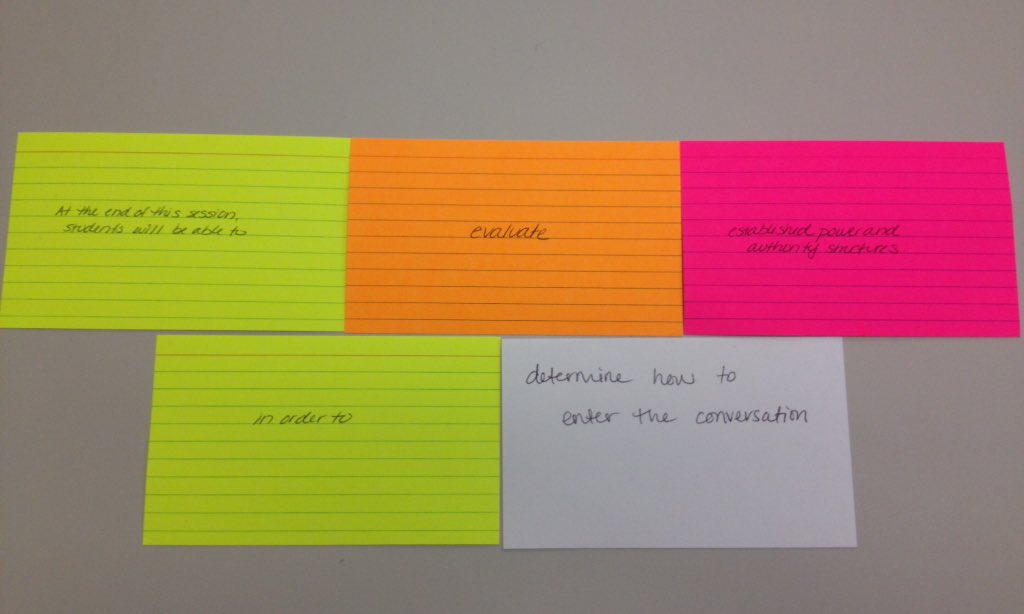 At the end of this session,
students will be able to
evaluate
established power and
authority structures
in order to
determine how to
enter the conversation